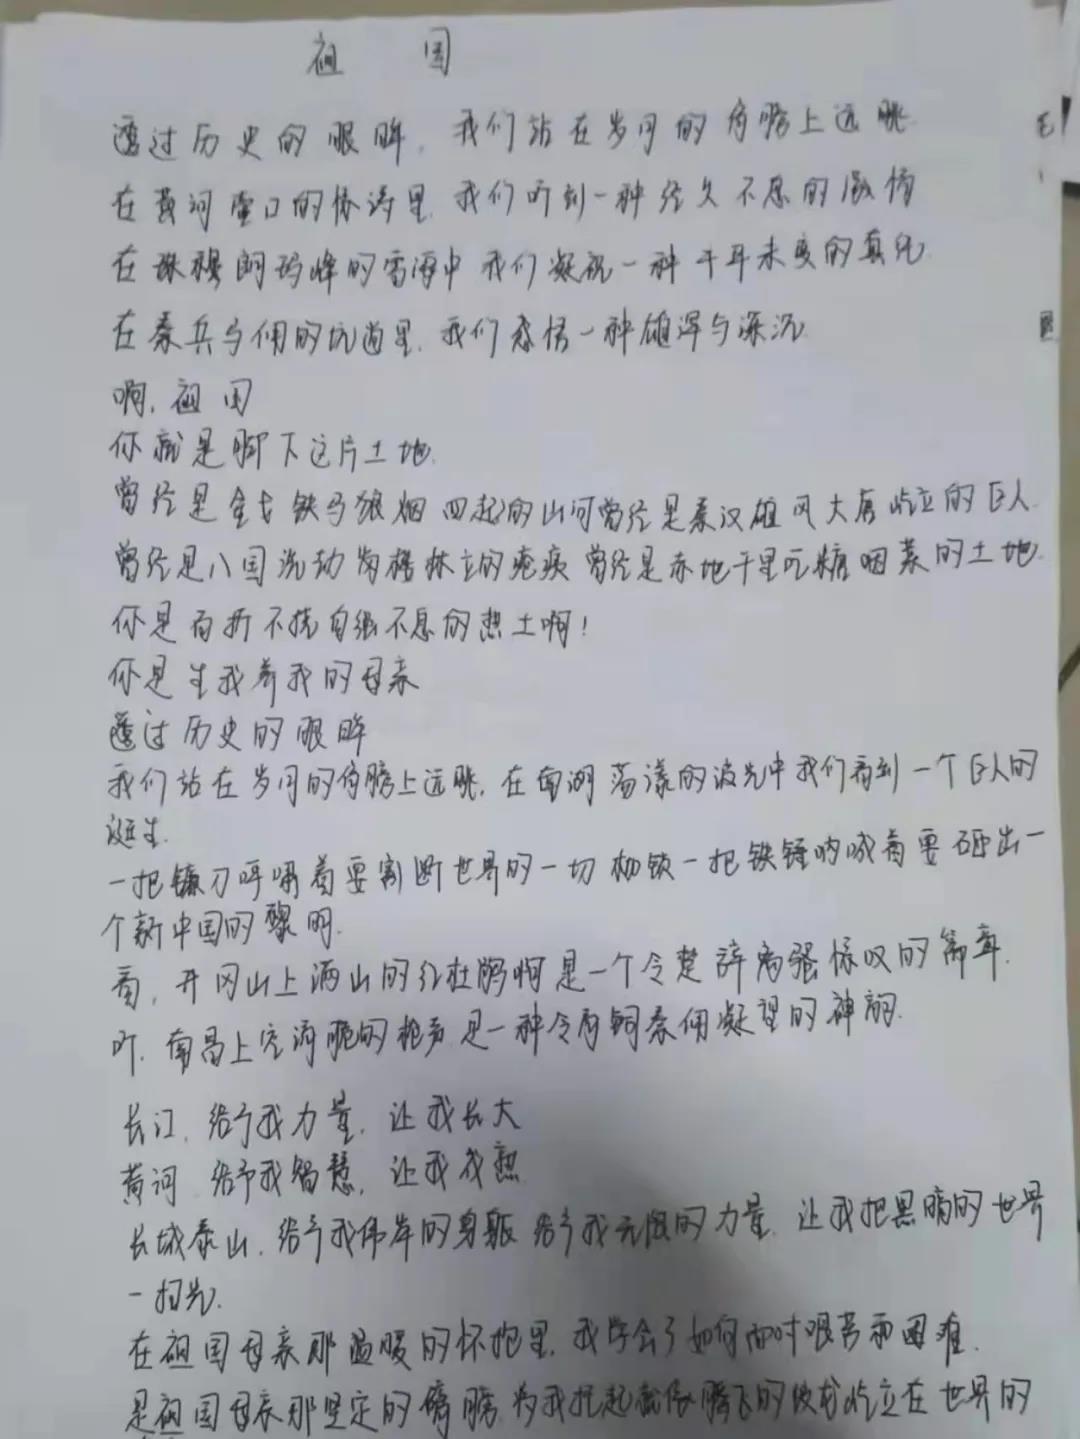 祖 国
透过历史的眼眸，我们站在岁月的肩膀上远眺
在黄河壶口的惊涛里，我们听到一种经久不息的激情
在珠穆朗玛峰的雪海中 我们凝视一种千年未变的真纯
在秦兵马俑的坑道里，我们感悟一种雄浑与深沉
啊，祖国
你就是脚下这片土地
曾经是金戈铁马狼烟四起的山河曾经是秦汉雄风大唐屹立的巨人
曾经是八国洗劫 林立的疮痍 曾经是赤地千里吃糠咽菜的土地
你是百折不挠自强不息的热土啊！
你是生我养我的母亲
透过历史的眼眸
我们站在岁月的肩膀上远眺，在南湖荡漾的波光中我们看到一个巨人的
诞生
一把镰刀呼啸着要割断世界的一切枷锁一把铁锤呐喊着要砸出一
个新中国的黎明
看，井冈山上满山的红杜鹃啊是一个令楚辞离骚惊叹的篇章
听，南昌上空清脆的枪声是一种令 秦俑凝望的神韵
长江，给予我力量，让我长大
黄河 给予我智慧，让我成熟
长城泰山，给予我伟岸的身躯 给予我无限的力量，让我把黑暗的世界
一扫光
在祖国母亲那温暖的怀抱里，我学会了如何面对艰苦和困难
是祖国母亲那坚定的臂膀，为我托起 腾飞的 屹立在世界的
毛